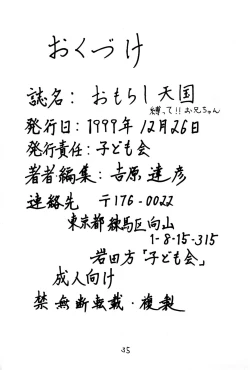 おくづけ
誌名: おもらし天国
縛って!!お兄ちゃん
発行日:1999年12月26日
発行責任:子ども会
著者編集:吉原達彦
連絡先 〒176-0022
東京都練馬区向山
1-8-15-315
岩田方「子ども会」
成人向け
禁無断転載・複製
35